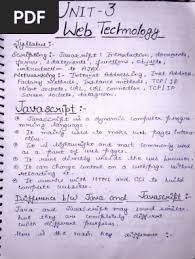 UNIT-3
Web Technology
Syllabus :-
Scripting : Javascript : Introduction, documents,
forms, statements, functions, objects,
introduction to AJAX
Networking : Internet Addressing, Inet Address,
Factory methods, Instance methods, TCP/IP
client sockets, URL, URL connection, TCP/IP
server sockets, datagram.
Javascript :-
Javascript is a dynamic computer programming
language.
It mainly used to make web pages
It is lightweight and most commonly used
as a part of web pages.
It can directly inside the web browser.
It can change the content
It works with HTML and CSS to build
complete websites.
Difference b/w Java and Javascript :-
Java and Javascript may sound similar
they are completely different
with different purposes.
Here is the main key difference :-